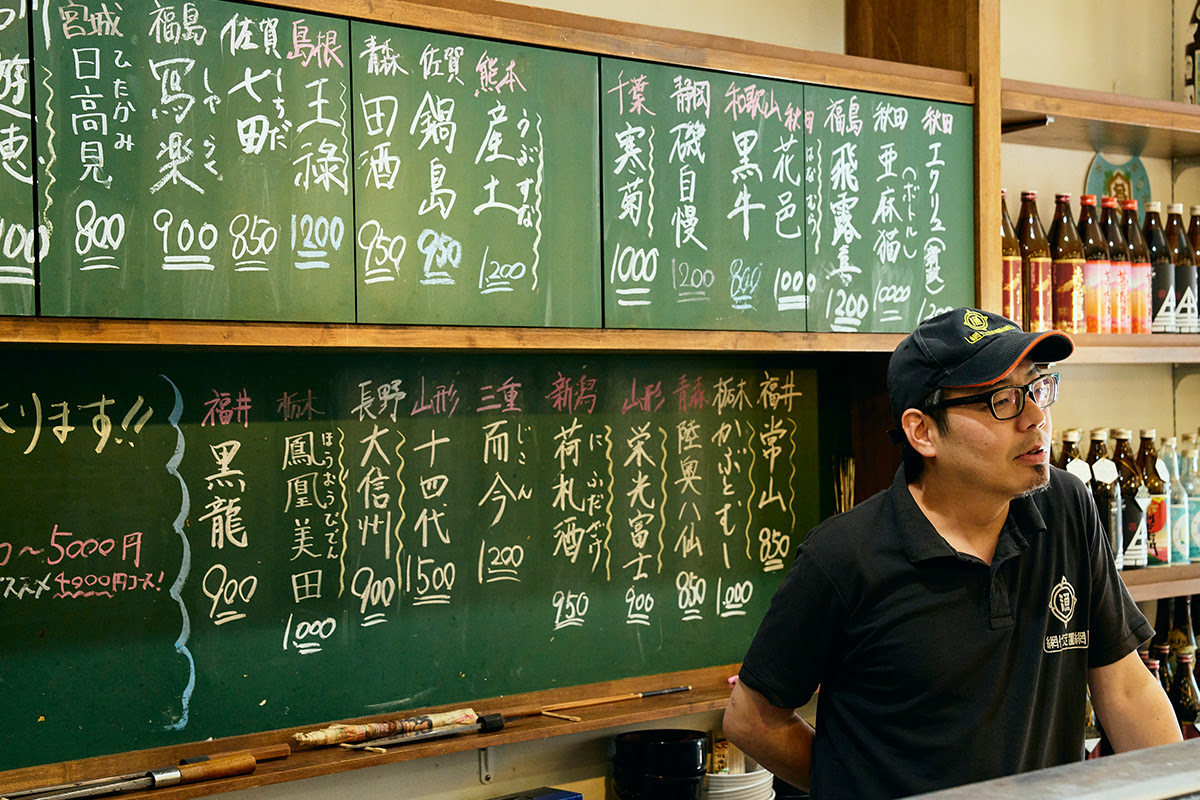 秋田
エクリュ(新政)
秋田
亜麻猫(ボトル)
1000
福島
飛露喜
1200
秋田
花邑
はなむら
1000
和歌山
黒牛
800
静岡
磯自慢
1200
千葉
寒菊
1000
熊本
産土
うぶすな
1200
佐賀
鍋島
950
青森
田酒
950
島根
王祿
1200
佐賀
七田
しちだ
850
福島
寫楽
しゃらく
900
宮城
日高見
ひたかみ
800
福井
常山
850
栃木
かぶとむし
1,000
青森
陸奥八仙
850
山形
栄光富士
900
新潟
荷札酒
にふだざけ
950
三重
而今
じこん
1200
山形
十四代
1500
長野
大信州
900
栃木
鳳凰美田
ほうおうびでん
1,000
福井
黒龍
900
ります!!
~5000円
ススメ4000円コース!
道